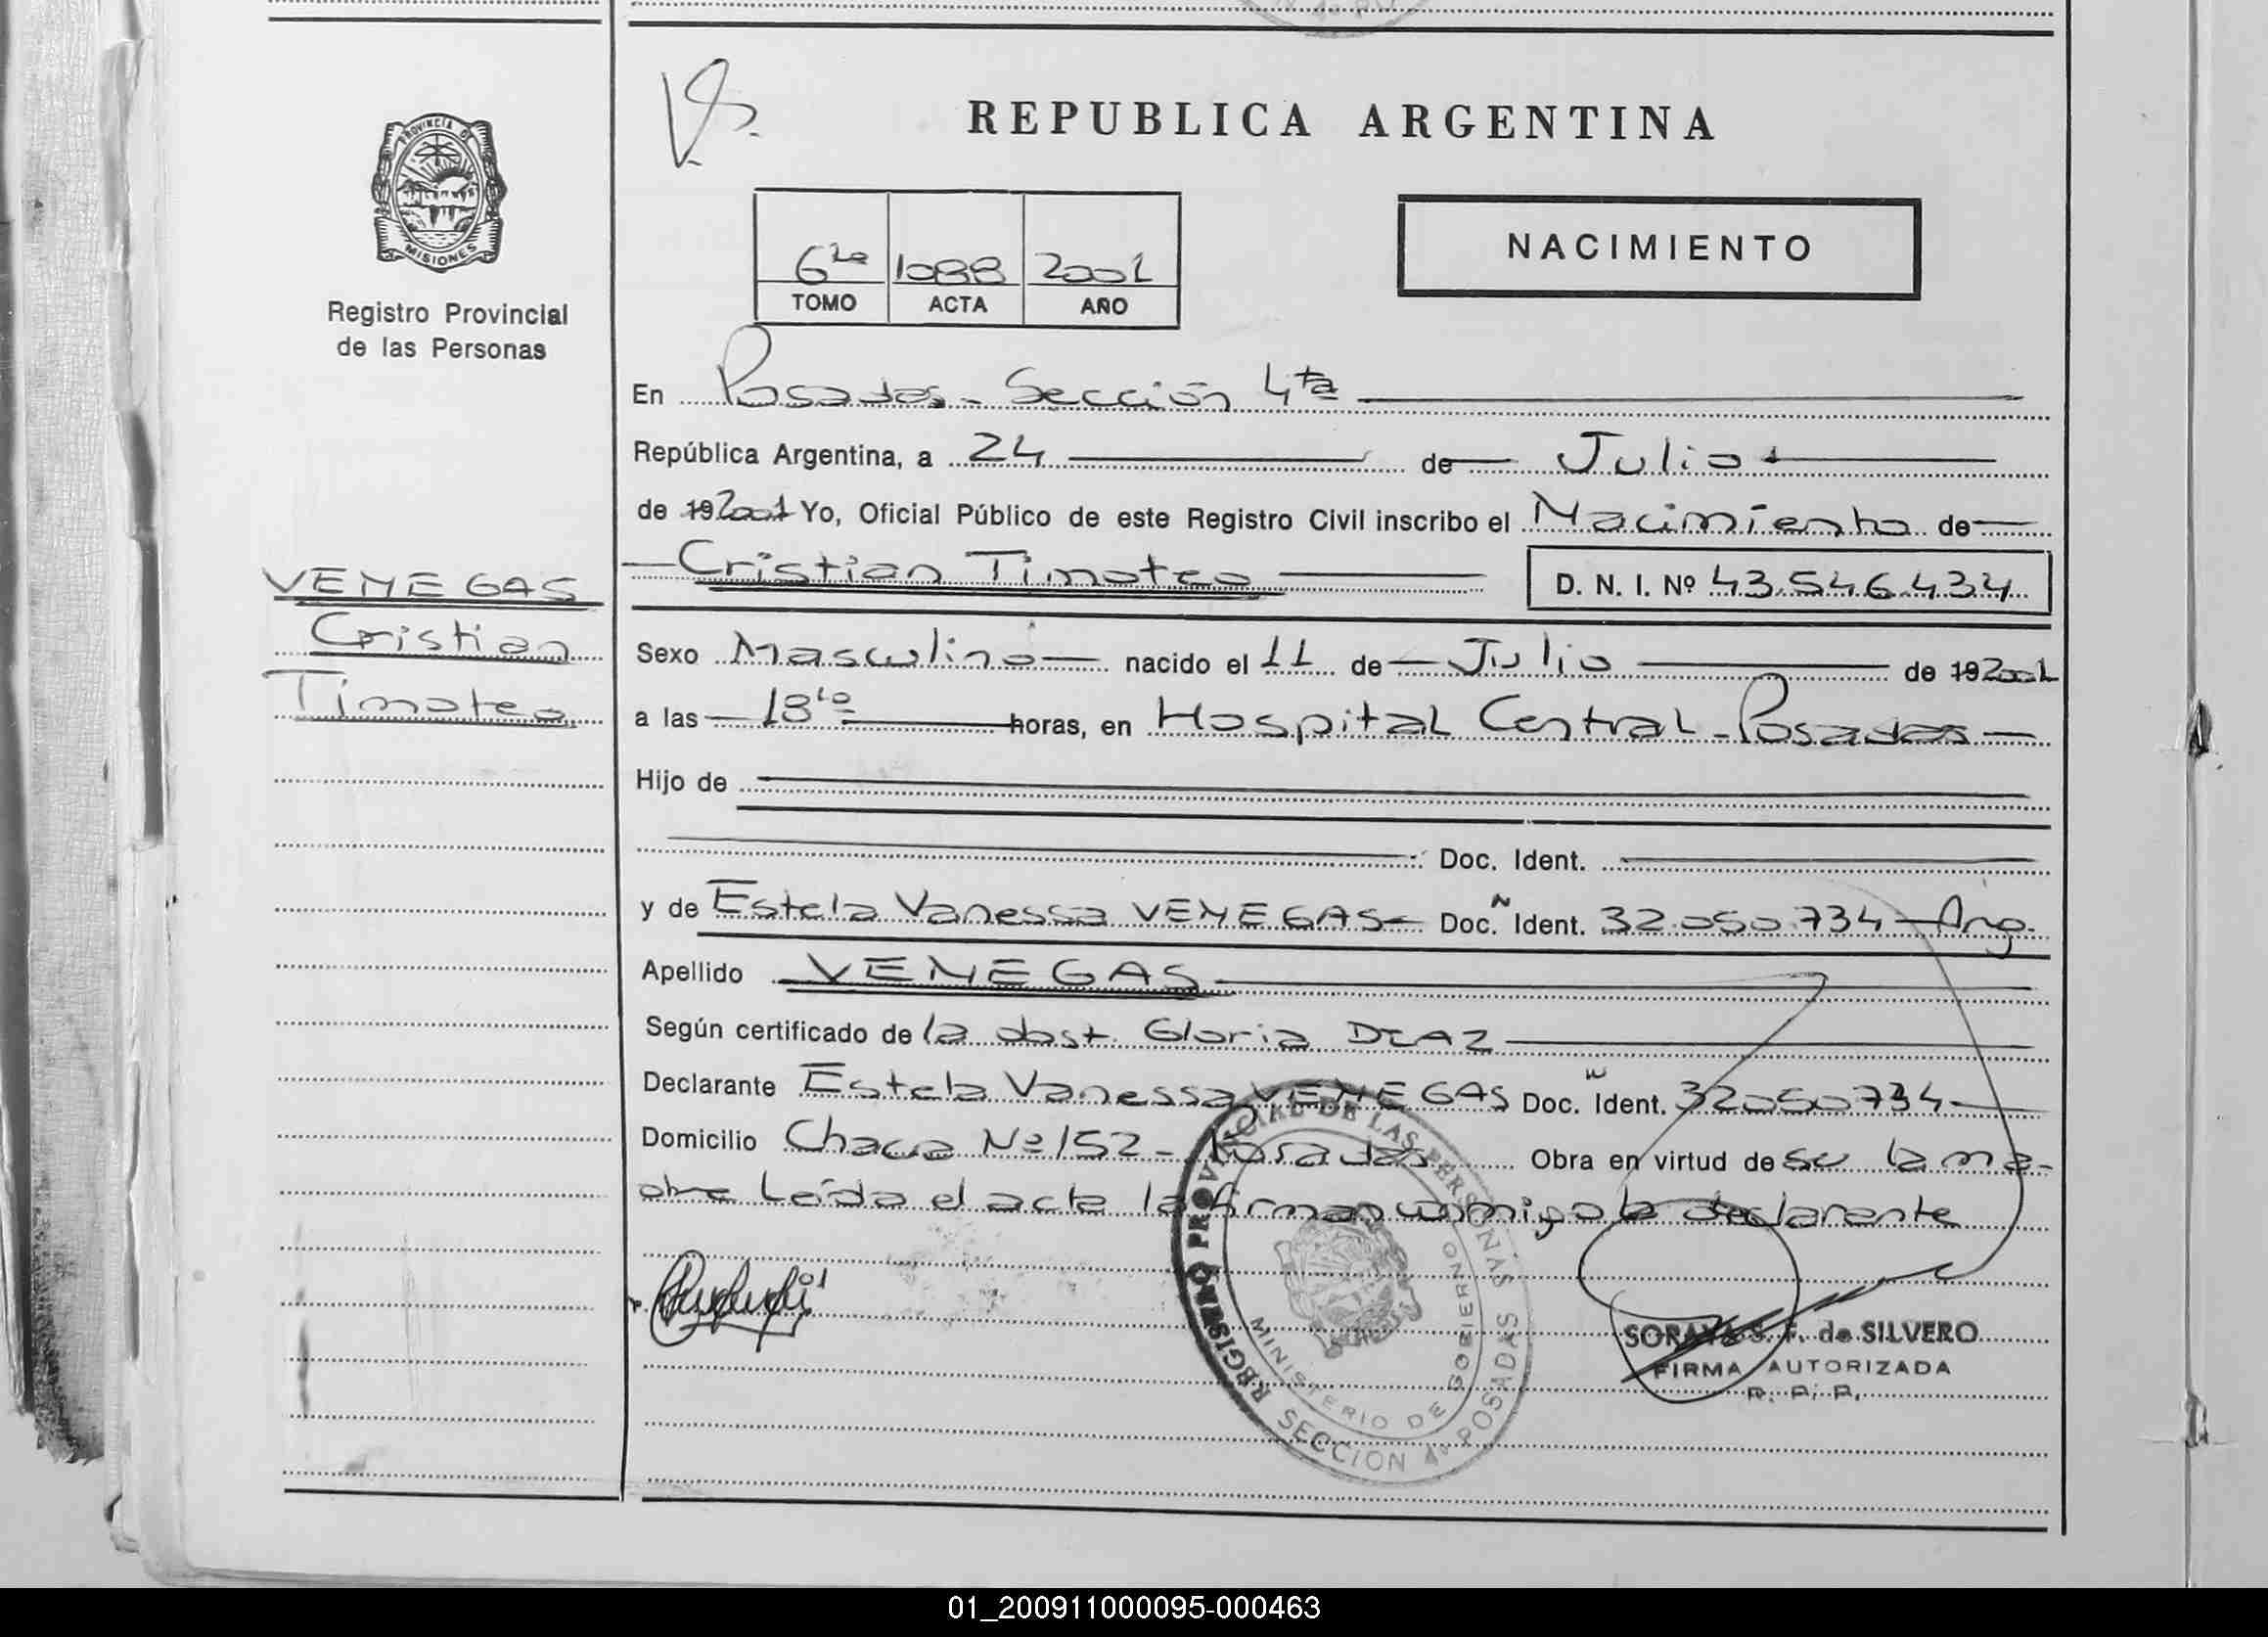 REPUBLICA ARGENTINA
PROVINCIA DE
MISIONES
Registro Provincial
de las Personas
6to 1088 2001
TOMO ACTA AÑO
NACIMIENTO
En Posadas - Sección 4ta
República Argentina, a 24 de Julio
de 19 2001 Yo, Oficial Público de este Registro Civil inscribo el Nacimiento de
Cristian Timoteo D. N. I. Nº 43.546.434
VENEGAS
Cristian
Timoteo
Sexo Masculino nacido el 11 de Julio de 19 2001
a las horas, en Hospital Central - Posadas
Hijo de
Doc. Ident.
y de Estela Vanessa VENEGAS Doc. Ident. 32.050.734 - Arg.
Apellido VENEGAS
Según certificado de la obst. Gloria DIAZ
Declarante Estela Vanessa VENEGAS Doc. Ident. 32050734
Domicilio Chacra Nº 152 - Posadas Obra en virtud de su la ma-
dre Leída el acta la firman conmigo la declarante
REGISTRO PROVINCIAL DE LAS PERSONAS
MINISTERIO DE GOBIERNO
SECCION 4º POSADAS
SORAYA S. F. de SILVERO
FIRMA AUTORIZADA
R. P. P.
01_200911000095-000463